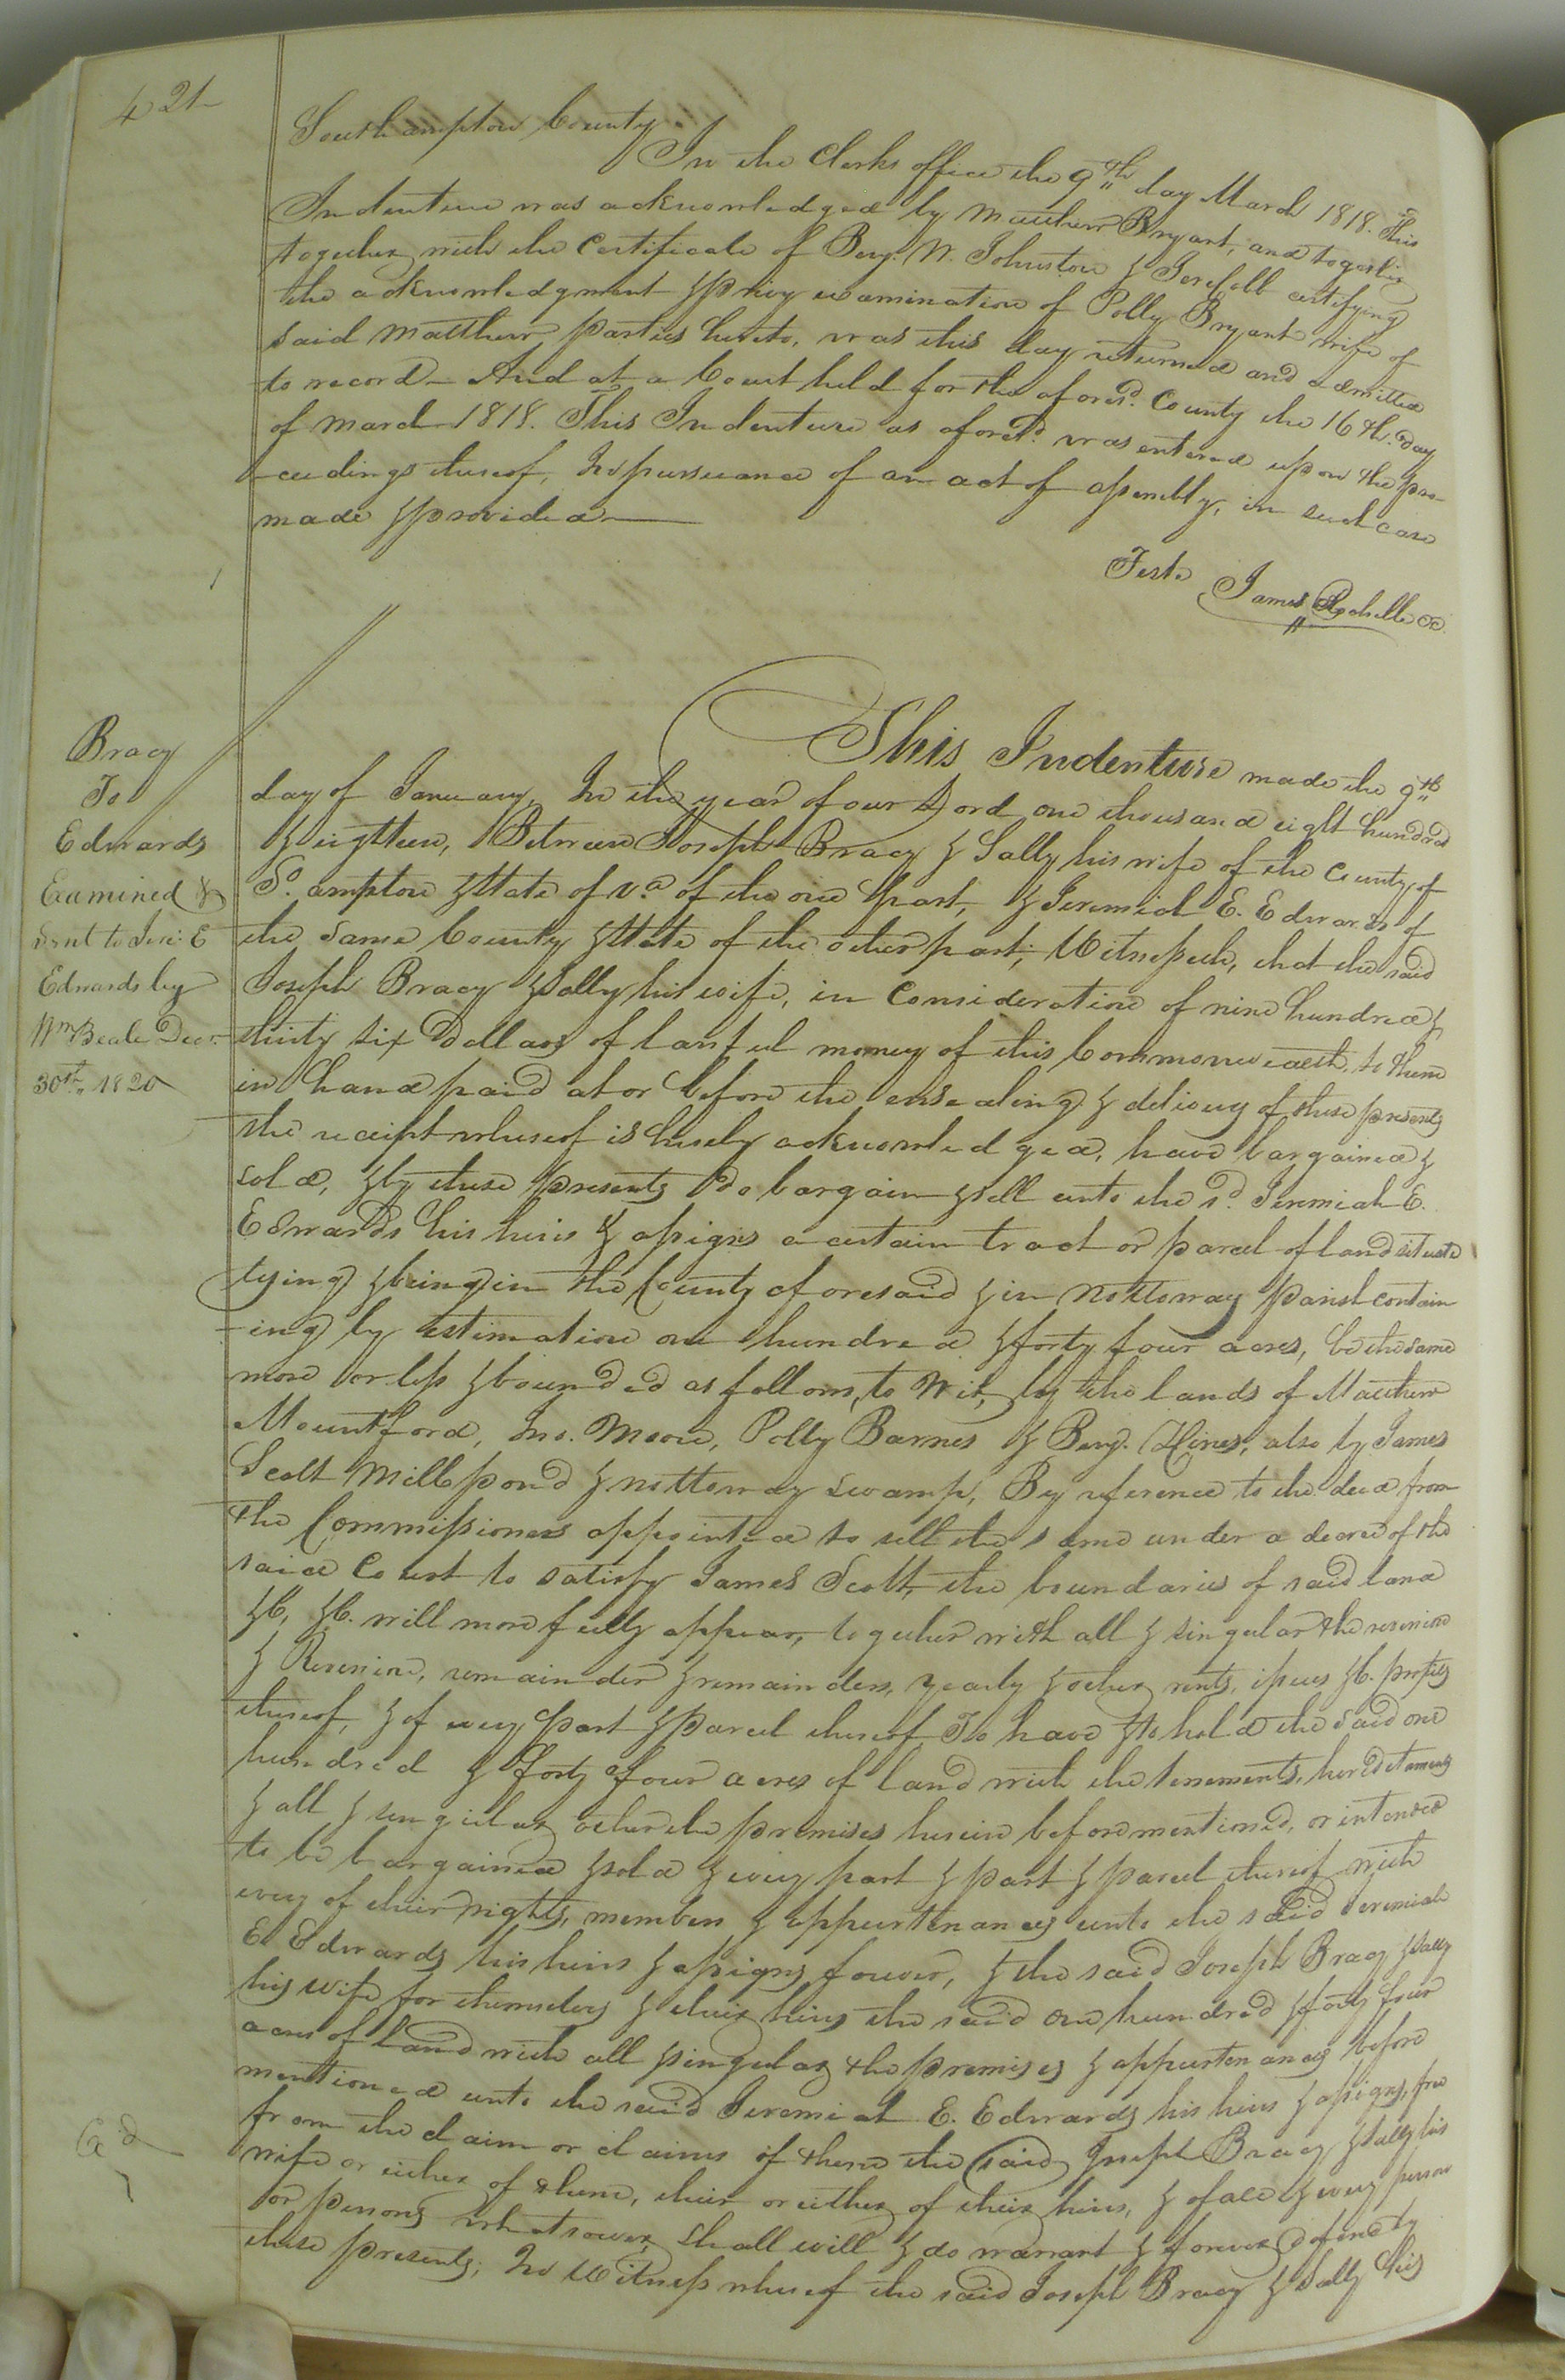 421
Southampton County
In the Clerks office the 9th day March 1818. This
Indenture was acknowledged by Matthew Bryant, and together
together with the Certificate of Benj. W. Johnston & certifying
the acknowledgment & privy examination of Polly Bryant wife of
said Matthew parties hereto, was this day returned and admitted
to record — And at a Court held for the aforesd. County the 16th. day
of March 1818. This Indenture as aforesd. was entered upon the pro-
ceedings thereof, In pursuance of an act of assembly, in such case
made & provided
Teste James Rochelle CC.
Bracy
To
Edwards
Examined &
Sent to Jere: E
Edwards by
Wm Beale Decr.
30th. 1820
This Indenture made the 9th
day of January, In the year of our Lord one thousand eight hundred
& eighteen, Between Joseph Bracy & Sally his wife of the County of
So. ampton & State of Va. of the one part, & Jeremiah E. Edwards of
the same County & State of the other part; Witnesseth, that the said
Joseph Bracy & Sally his wife, in Consideration of nine hundred &
thirty six Dollars of lawful money of this Commonwealth, to them
in hand paid at or before the ensealing & delivery of these presents
the receipt whereof is hereby acknowledged, have bargained &
sold, & by these presents do bargain & sell unto the sd. Jeremiah E.
Edwards his heirs & assigns a certain tract or parcel of land situate
lying & being in the County aforesaid & in Nottoway parish contain
-ing by estimation one hundred & forty four acres, be the same
more or less & bounded as follows, to Wit, by the lands of Matthew
Mountford, Jno. Moore, Polly Barnes & Benj. Hines, also by James
Scott Mill pond & Nottoway swamp, By reference to the deed from
the Commissioners appointed to sell the same under a decree of the
said Court to satisfy James Scott, the boundaries of said land
&c, &c. will more fully appear, together with all & singular the
& Reversions, remainder & remainders, yearly & other rents, issues &c. profits
thereof, & of every part & parcel thereof To have & to hold the said one
hundred & forty four acres of land with the tenements, hereditaments
& all & singular other the premises herein before mentioned, or intended
to be bargained & sold & every part & part & parcel thereof with
every of their rights, members & appurtenances unto the said Jeremiah
E. Edwards his heirs & assigns forever, & the said Joseph Bracy & Sally
his wife for themselves & their heirs the said one hundred & forty four
acres of land with all & singular the premises & appurtenances before
mentioned unto the said Jeremiah E. Edwards his heirs & assigns, free
from the claim or claims of them the said Joseph Bracy & Sally his
wife or either of them, their or either of their heirs, & of all & every person
or persons whatsoever, shall will & do warrant & forever defend by
these presents; In Witness whereof the said Joseph Bracy & Sally his